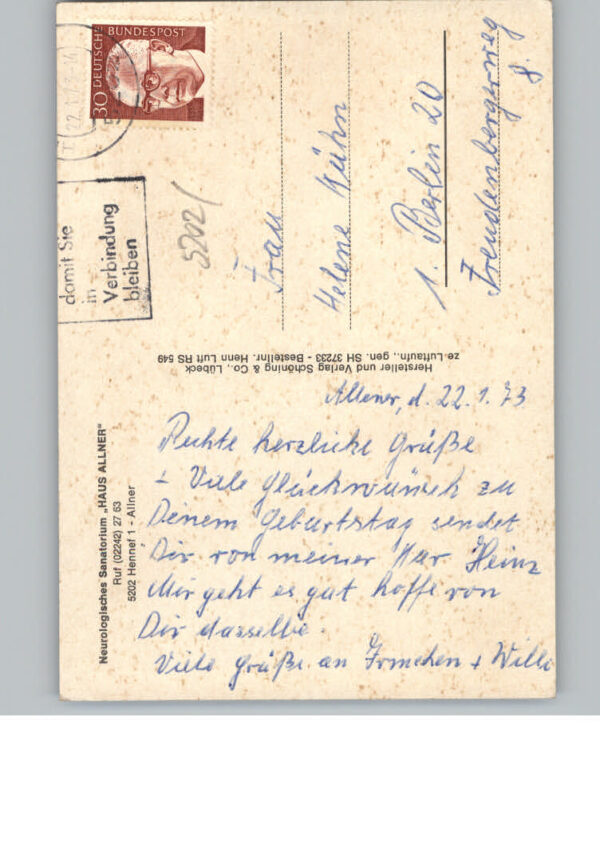 Neurologisches Sanatorium „HAUS ALLNER"
Ruf (02242) 27 63
5202 Hennef 1 - Allner
Allner, d. 22. 1. 73
Rechte herzliche Grüße
+ Viele Glückwünsch zu
Deinem Geburtstag sendet
Dir von meiner Kur Heinz
Mir geht es gut hoffe von
Dir dasselbe.
Viele Grüße an Irmchen + Willi
Hersteller und Verlag Schöning & Co., Lübeck
ze-Luftaufn., gen. SH 37233 - Bestellnr. Henn Luft RS 549
damit Sie
in
Verbindung
bleiben
5202
DEUTSCHE BUNDESPOST
30
Frau
Helene Kühn
1. Berlin 20
Freudenbergerweg
8.